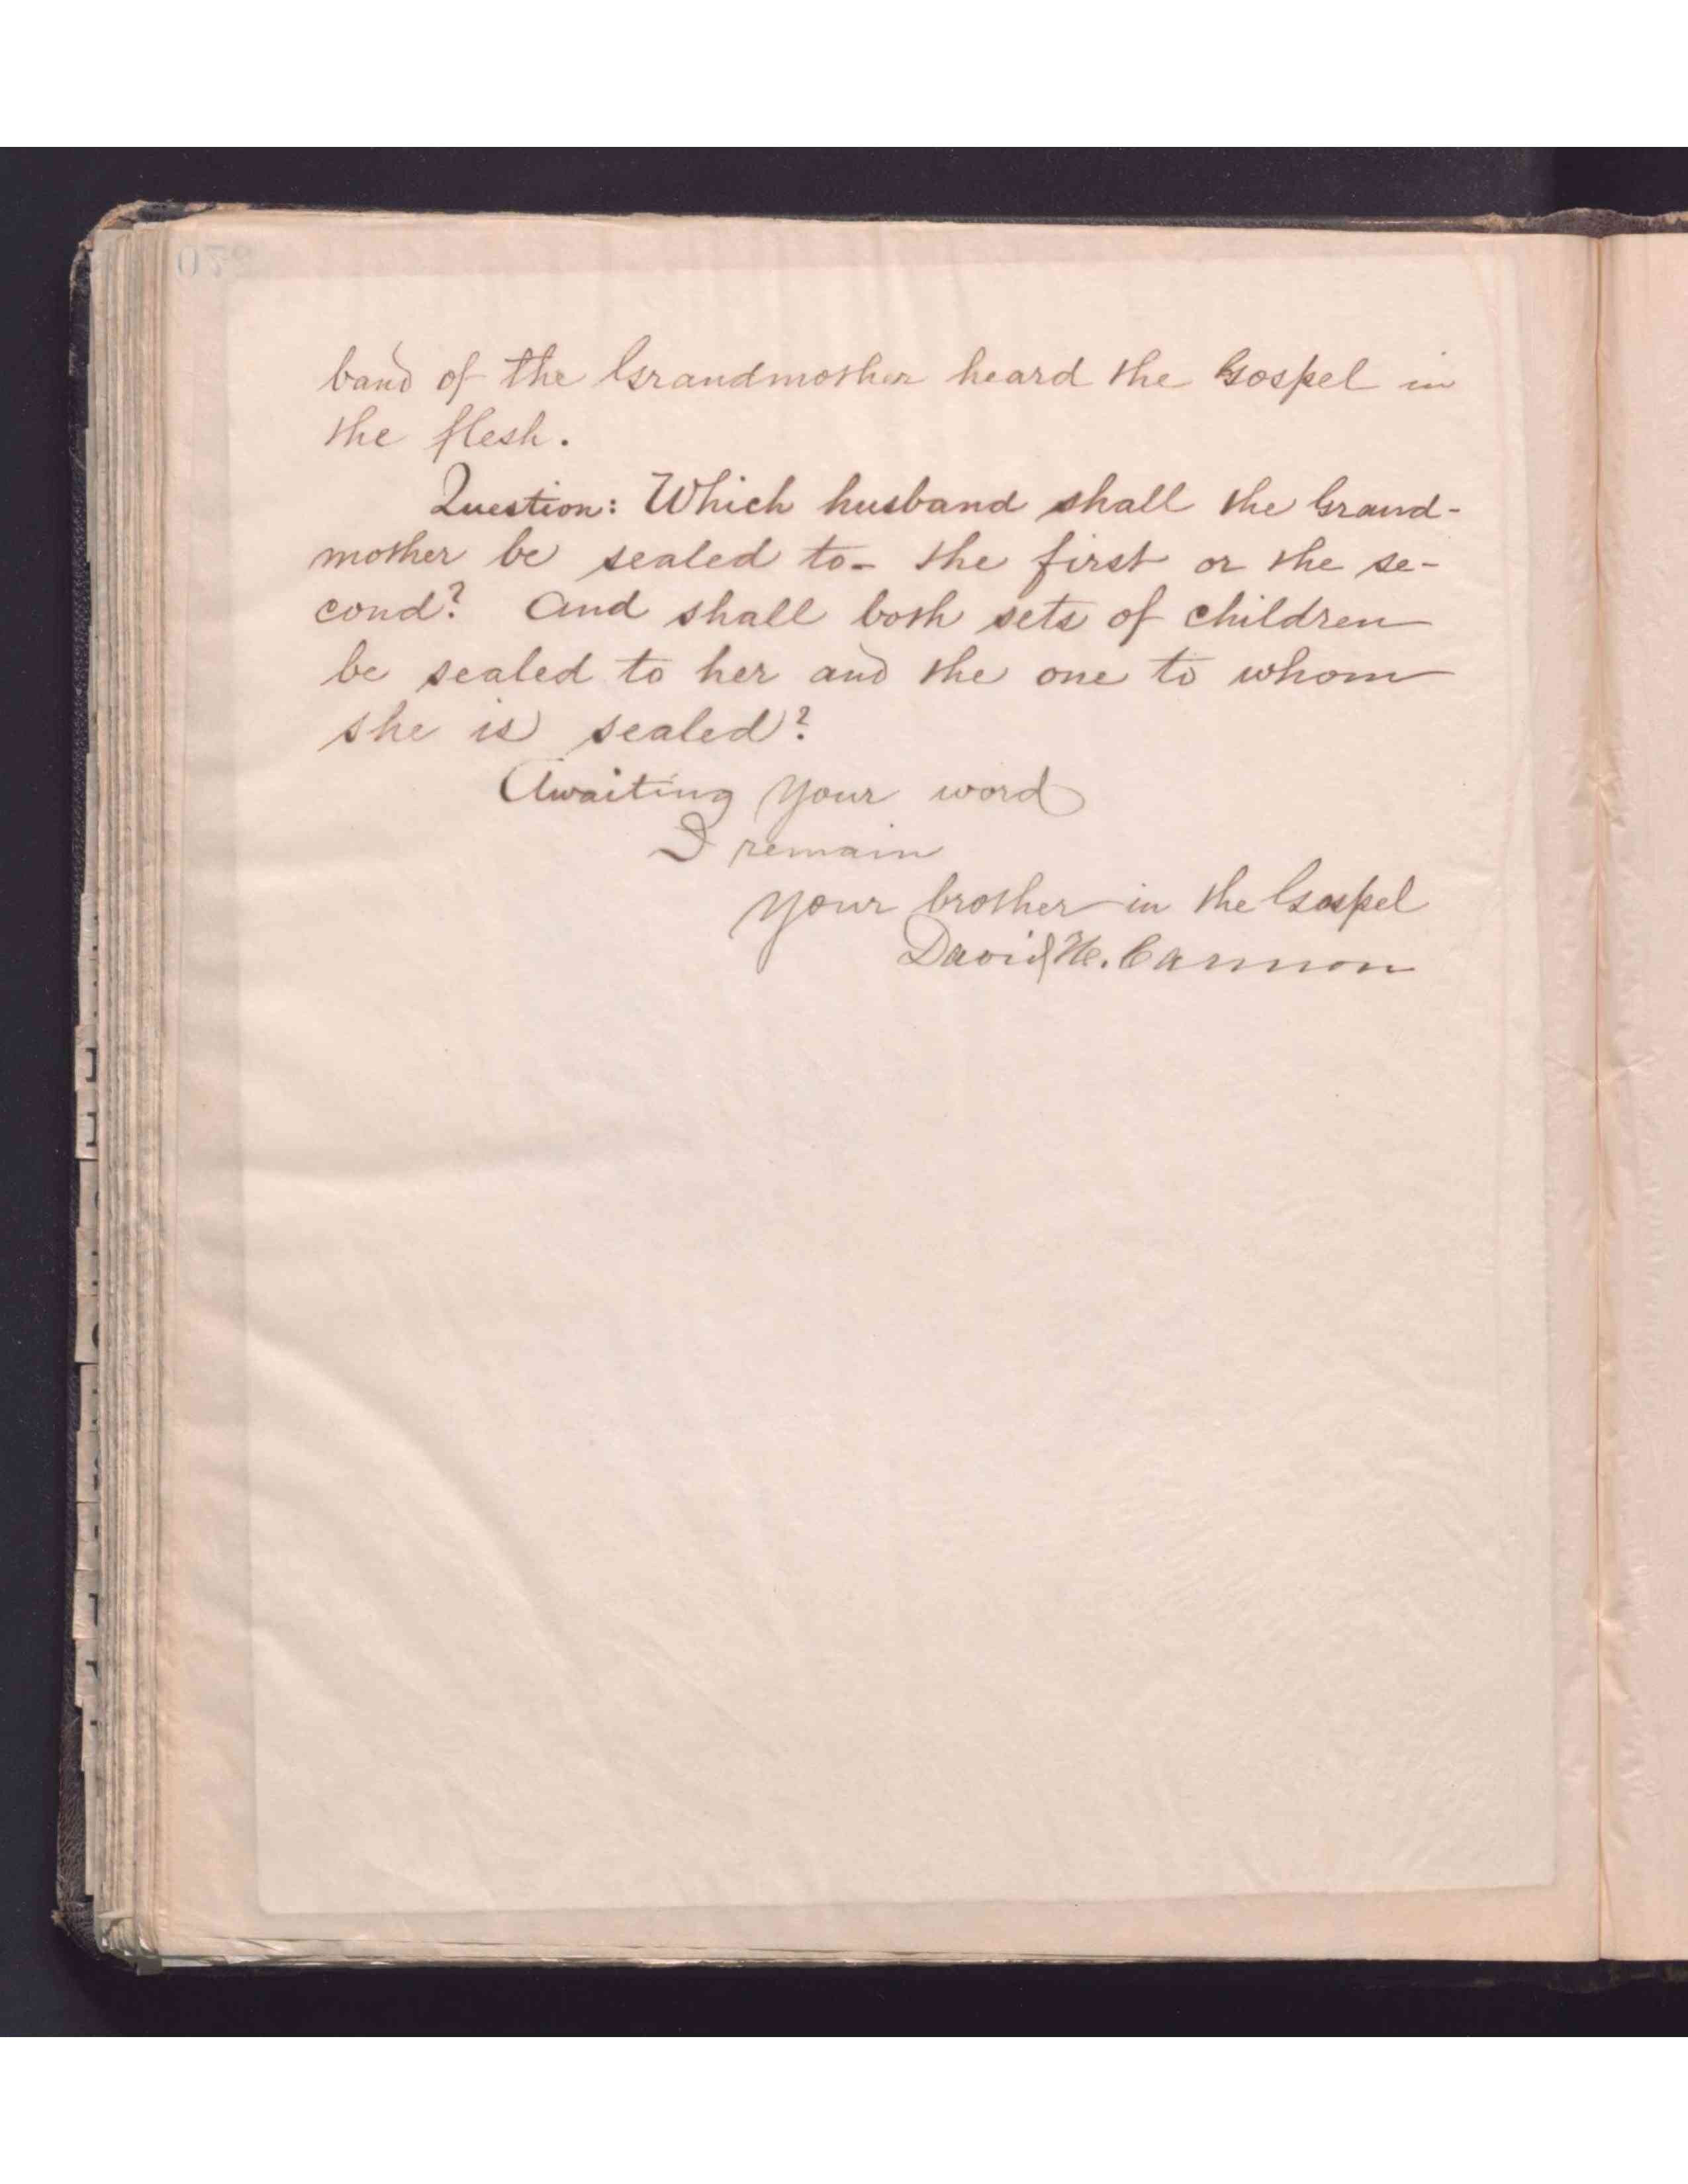 band of the Grandmother heard the Gospel in
the flesh.
Question: Which husband shall the Grand-
mother be sealed to- the first or the se-
cond? And shall both sets of children
be sealed to her and the one to whom
she is sealed?
Awaiting your word
I remain
Your brother in the Gospel
David H. Cannon